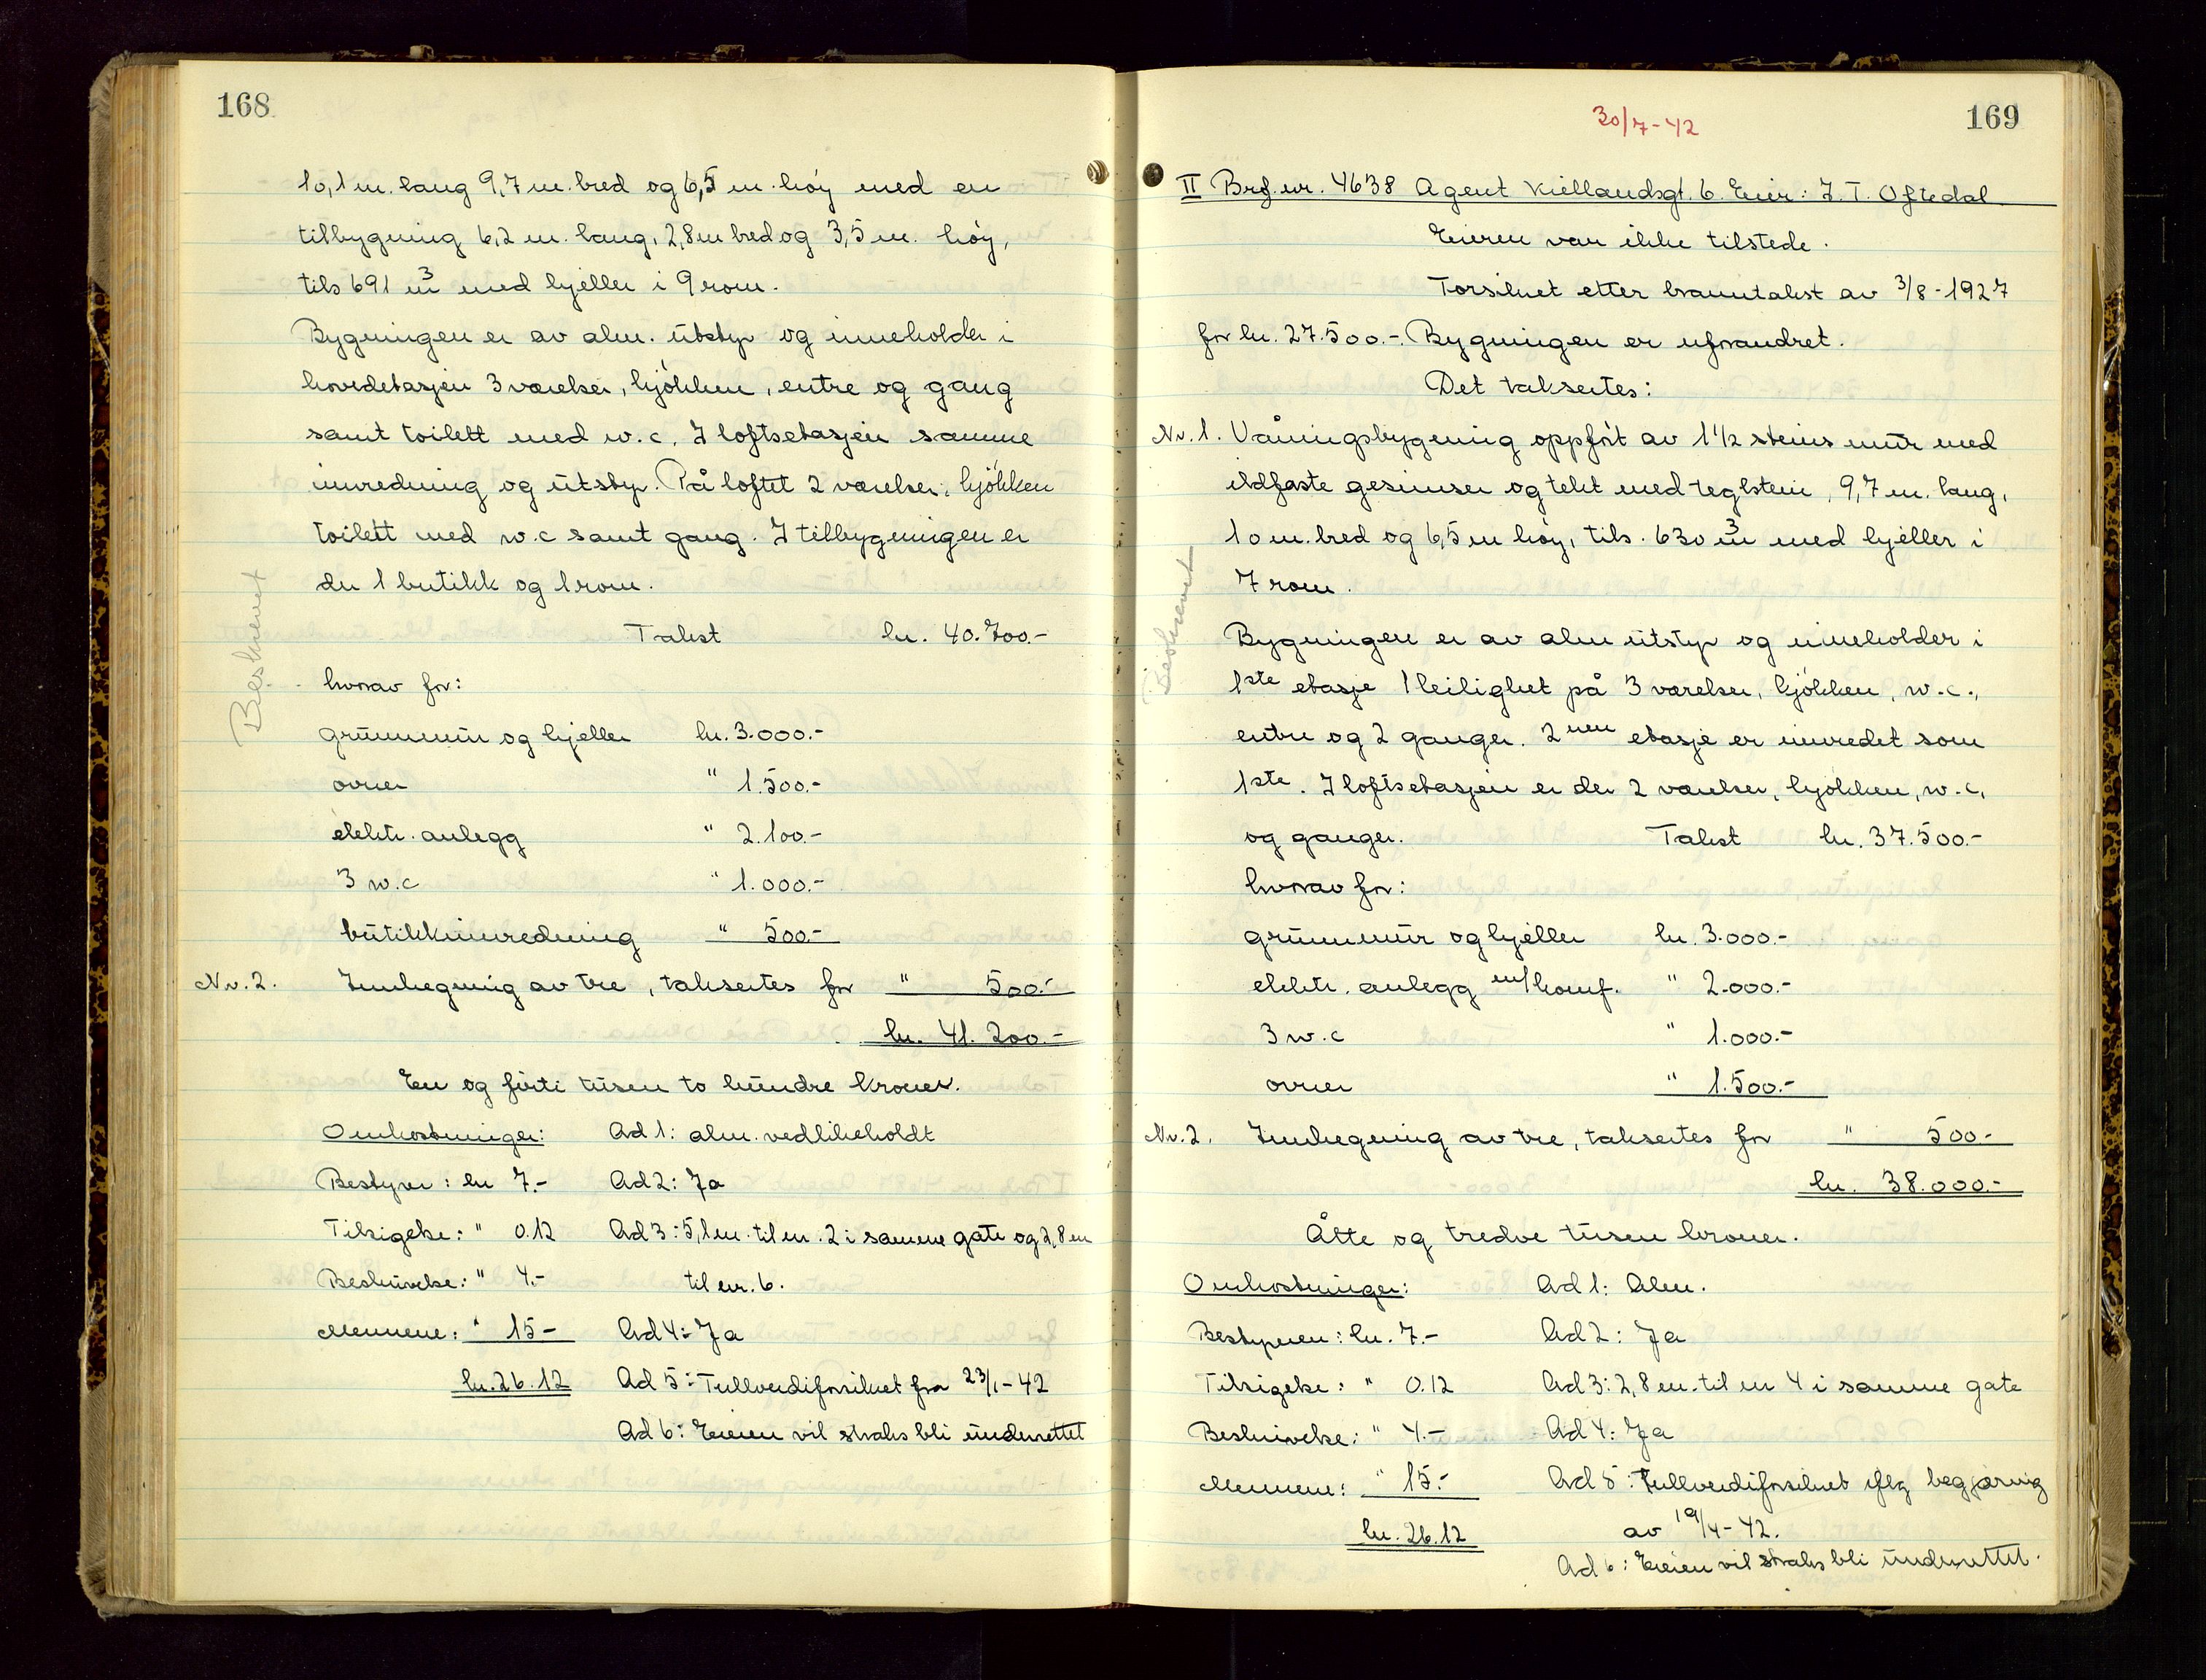 168
10,1 m. lang 9,7 m. bred og 6,5 m. høy med en
tilbygning 6,2 m. lang, 2,8 m bred og 3,5 m. høy,
tils 691 m³ med kjeller i 9 rom.
Bygningen er av alm. utstyr og inneholder i
hovedetasjen 3 værelser, kjøkken, entre og gang
samt toilett med w.c. I loftsetasjen samme
innredning og utstyr. På loftet 2 værelser, kjøkken
toilett med w.c samt gang. I tilbygningen er
der 1 butikk og 1 rom.
Takst kr. 40.700.-
Beskrevet
hvorav for:
grunnmur og kjeller kr. 3.000.-
ovner " 1.500.-
elektr. anlegg " 2.100.-
3 w.c " 1.000.-
butikkinnredning " 500.-
Nr. 2. Innhegning av tre, takseres for " 500.-
kr. 41.200.-
En og førti tusen to hundre kroner.
Omkostninger: Ad 1: alm. vedlikeholdt
Bestyrer: kr 7.- Ad 2: Ja
Tilsigelse: " 0.12 Ad 3: 5,1 m. til nr. 2 i samme gate og 2,8 m
Beskrivelse: " 4.- til nr. 6.
Mennene: " 15- Ad 4: Ja
kr. 26.12 Ad 5: Fullverdiforsikret fra 23/1-42
Ad 6: Eieren vil straks bli underrettet
30/7-42
169
II Brf. nr. 4638 Agent Kiellandsgt. 6. Eier: J. T. Oftedal
Eieren var ikke tilstede.
Forsikret etter branntakst av 3/8-1927
for kr. 27.500.-. Bygningen er uforandret.
Det takseres:
Nr. 1. Våningsbygning oppført av 1 1/2 steins mur med
ildfaste gesimser og tekt med teglstein, 9,7 m. lang,
10 m. bred og 6,5 m høy, tils. 630 m³ med kjeller i
7 rom.
Beskrevet
Bygningen er av alm utstyr og inneholder i
1ste etasje 1 leilighet på 3 værelser, kjøkken, w.c.,
entre og 2 ganger. 2nen etasje er innredet som
1ste. I loftsetasjen er der 2 værelser, kjøkken, w.c.
og ganger. Takst kr. 37.500.-
hvorav for:
grunnmur og kjeller kr. 3.000.-
elektr. anlegg m/komf. " 2.000.-
3 w.c " 1.000.-
ovner " 1.500.-
Nr. 2. Innhegning av tre, takseres for " 500.-
kr. 38.000.-
Åtte og tredve tusen kroner.
Omkostninger: Ad 1: Alm.
Bestyreren: kr. 7.- Ad 2: Ja
Tilsigelse: " 0.12 Ad 3: 2,8 m. til nr 4 i samme gate
Beskrivelse: " 4.- Ad 4: Ja
Mennene: " 15.- Ad 5: Fullverdiforsikret iflg begjæring
kr. 26.12 av 19/4-42.
Ad 6: Eieren vil straks bli underrettet.